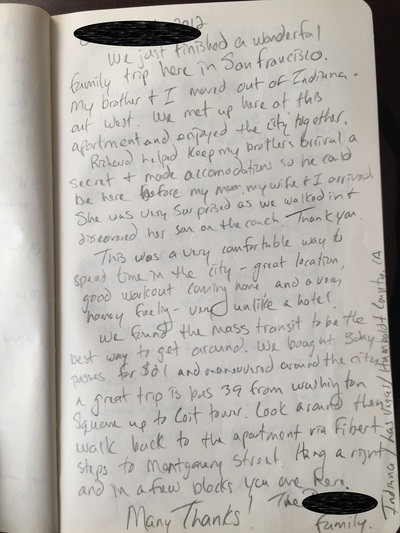 2012
We just finished a wonderful
family trip here in San Francisco.
My brother & I moved out of Indiana -
out west. We met up here at this
apartment and enjoyed the city together.
Richard helped keep my brother's arrival a
secret & made accomodations so he could
be here before my mom, my wife & I arrived
She was very surprised as we walked in &
discovered her son on the couch. Thank you.
This was a very comfortable way to
spend time in the city - great location,
good workout coming home and a very
homey feeling - very unlike a hotel.
We found the mass transit to be the
best way to get around. We bought 3 day
passes for $21 and maneuvered around the city
a great trip is bus 39 from Washington
Square up to Coit tower. Look around then
walk back to the apartment via Filbert
steps to Montgomery Street. Hang a right
and in a few blocks you are here.
Many Thanks! The
family.
Indiana / Las Vegas / Humboldt County, CA